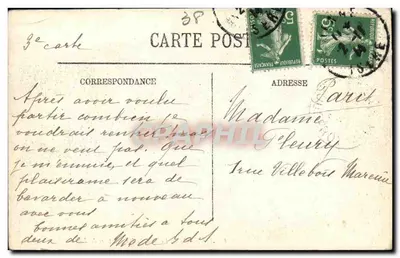 3P
3e carte
CARTE POST
CORRESPONDANCE
ADRESSE
Après avoir voulu
partir combien je
voudrais rentrer mais
on ne veut pas. Que
je m'ennuie et quel
plaisir ce sera de
bavarder à nouveau
avec vous
bonnes amitiés à tous
deux de
Paris
Madame
Fleury
rue Villebois Mareuil